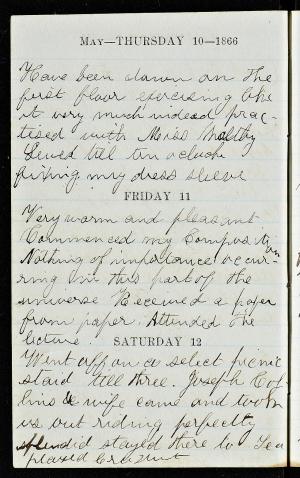 May—THURSDAY 10—1866
Have been down on the
first floor exercising like
it very much indeed prac-
tised with Miss Maltby
Sewed till ten oclock
fixing my dress sleeve
FRIDAY 11
Very warm and pleasant
Commenced my Composition
Nothing of importance occur-
ring in this part of the
universe Received a paper
from paper. Attended the
lecture
SATURDAY 12
Went off on a select picnic
staid till three. Joseph Col-
lins & wife came and took
us out riding perfectly
splendid stayed there to Tea
played